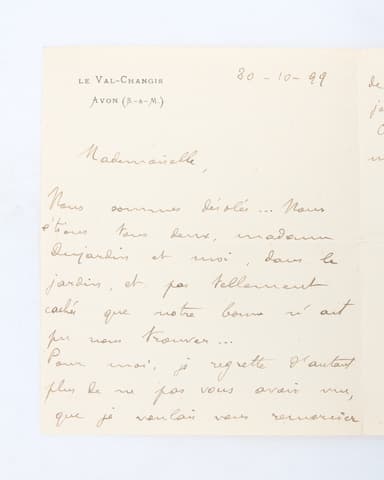 LE VAL-CHANGIS
AVON (S.-&-M.)
30-10-99
Mademoiselle,
Nous sommes désolés... Nous
étions tous deux, madame
Dujardin et moi, dans le
jardin, et pas tellement
cachés que notre bonne n'ait
pu nous trouver...
Pour moi, je regrette d'autant
plus de ne pas vous avoir vue,
que je voulais vous remercier
de